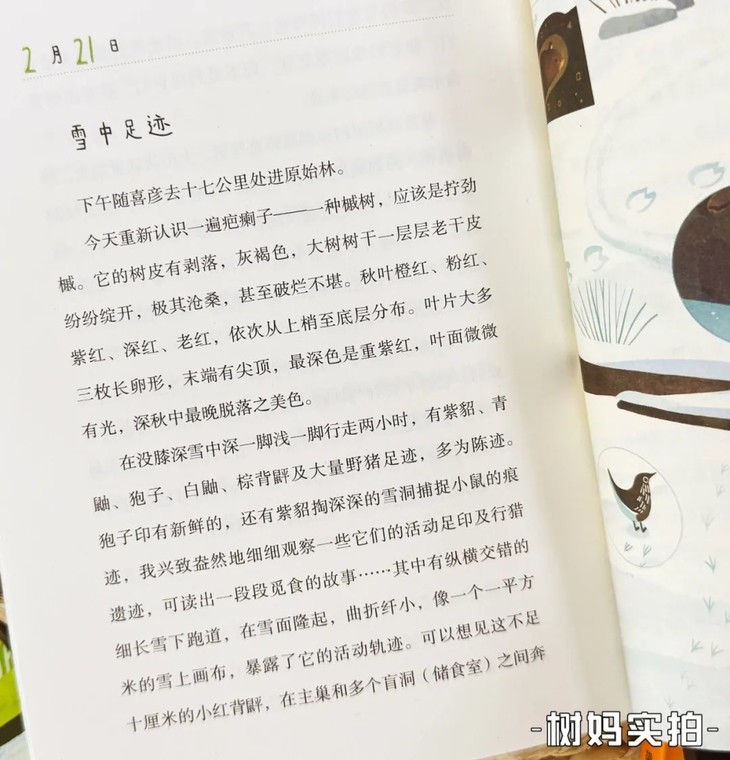 2月21日
雪中足迹
下午随喜彦去十七公里处进原始林。
今天重新认识一遍疤瘌子——一种槭树，应该是拧劲
槭。它的树皮有剥落，灰褐色，大树树干一层层老干皮
纷纷绽开，极其沧桑，甚至破烂不堪。秋叶橙红、粉红、
紫红、深红、老红，依次从上梢至底层分布。叶片大多
三枚长卵形，末端有尖顶，最深色是重紫红，叶面微微
有光，深秋中最晚脱落之美色。
在没膝深雪中深一脚浅一脚行走两小时，有紫貂、青
鼬、狍子、白鼬、棕背䶄及大量野猪足迹，多为陈迹。
狍子印有新鲜的，还有紫貂掏深深的雪洞捕捉小鼠的痕
迹，我兴致盎然地细细观察一些它们的活动足印及行猎
遗迹，可读出一段段觅食的故事……其中有纵横交错的
细长雪下跑道，在雪面隆起，曲折纤小，像一个一平方
米的雪上画布，暴露了它的活动轨迹。可以想见这不足
十厘米的小红背䶄，在主巢和多个盲洞（储食室）之间奔
-树妈实拍-